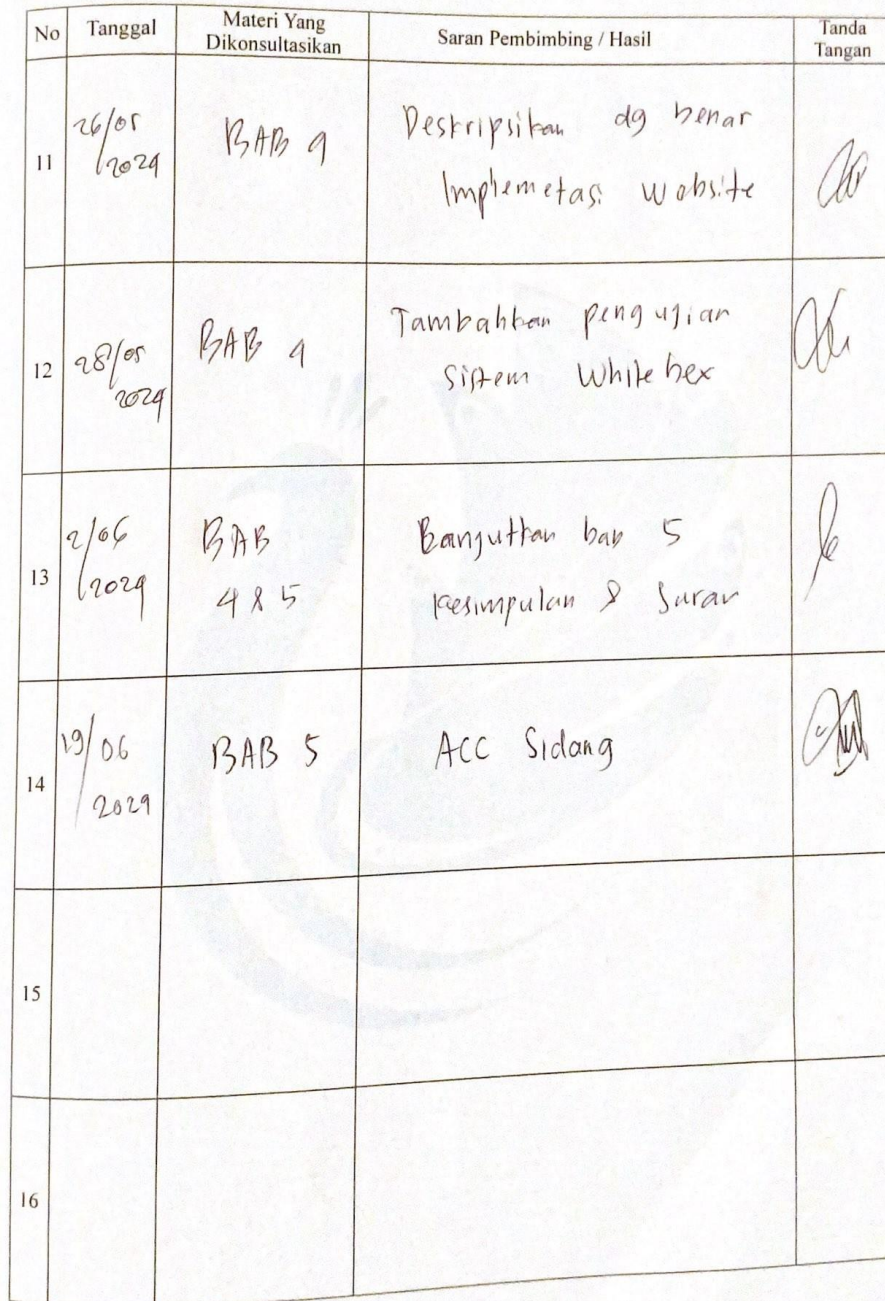 No Tanggal Materi Yang Dikonsultasikan Saran Pembimbing / Hasil Tanda Tangan
11 26/05/2024 BAB 4 Deskripsikan dg benar
Implemetasi Website
12 28/05/2024 BAB 4 Tambahkan pengujian
Sistem Whitebox
13 2/06/2024 BAB 4 & 5 bab 5
Kesimpulan & Saran
14 19/06/2024 BAB 5 ACC Sidang
15
16